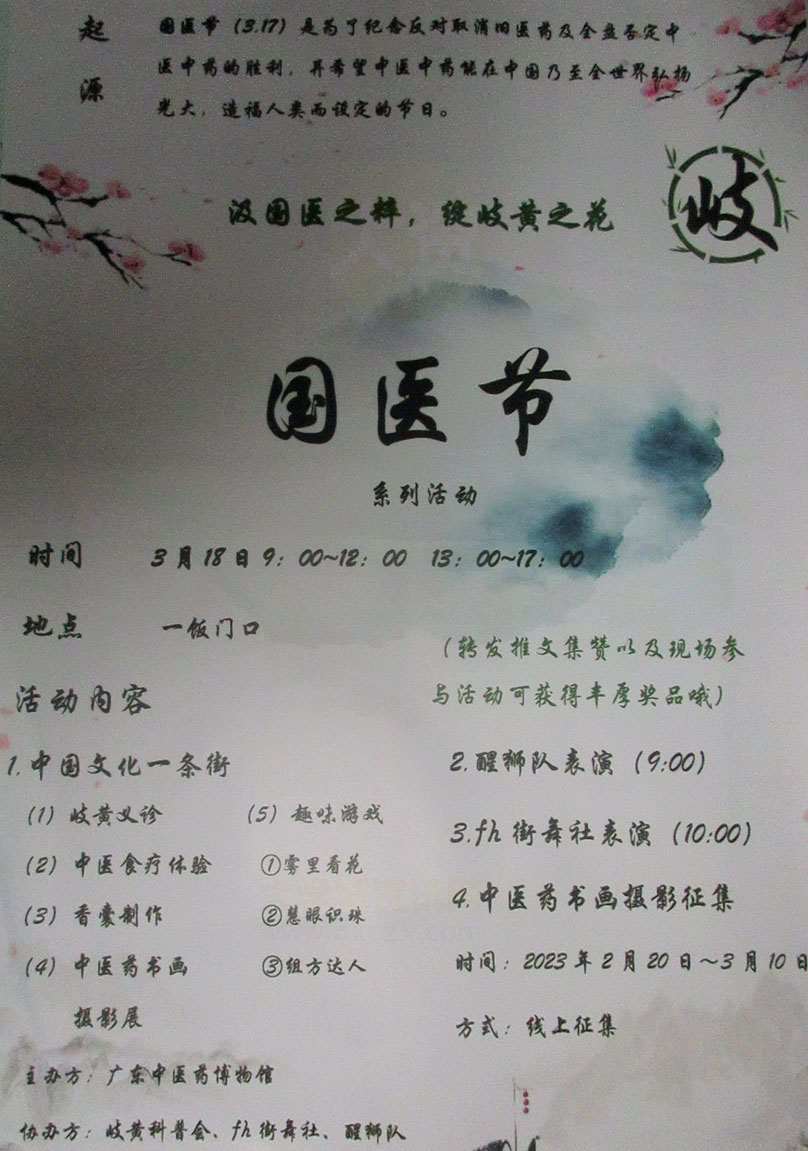 起源
国医节（3.17）是为了纪念反对取消旧医药及全盘否定中
医中药的胜利，并希望中医中药能在中国乃至全世界弘扬
光大，造福人类而设定的节日。
汲国医之粹，绽岐黄之花
岐
国医节
系列活动
时间 3月18日9：00~12：00 13：00~17：00
地点 一饭门口
（转发推文集赞以及现场参
与活动可获得丰厚奖品哦）
活动内容
1.中国文化一条街
（1）岐黄义诊
（2）中医食疗体验
（3）香囊制作
（4）中医药书画
摄影展
（5）趣味游戏
①雾里看花
②慧眼识珠
③组方达人
2.醒狮队表演（9:00）
3.fh街舞社表演（10:00）
4.中医药书画摄影征集
时间：2023年2月20日～3月10日
方式：线上征集
主办方：广东中医药博物馆
协办方：岐黄科普会、fh街舞社、醒狮队